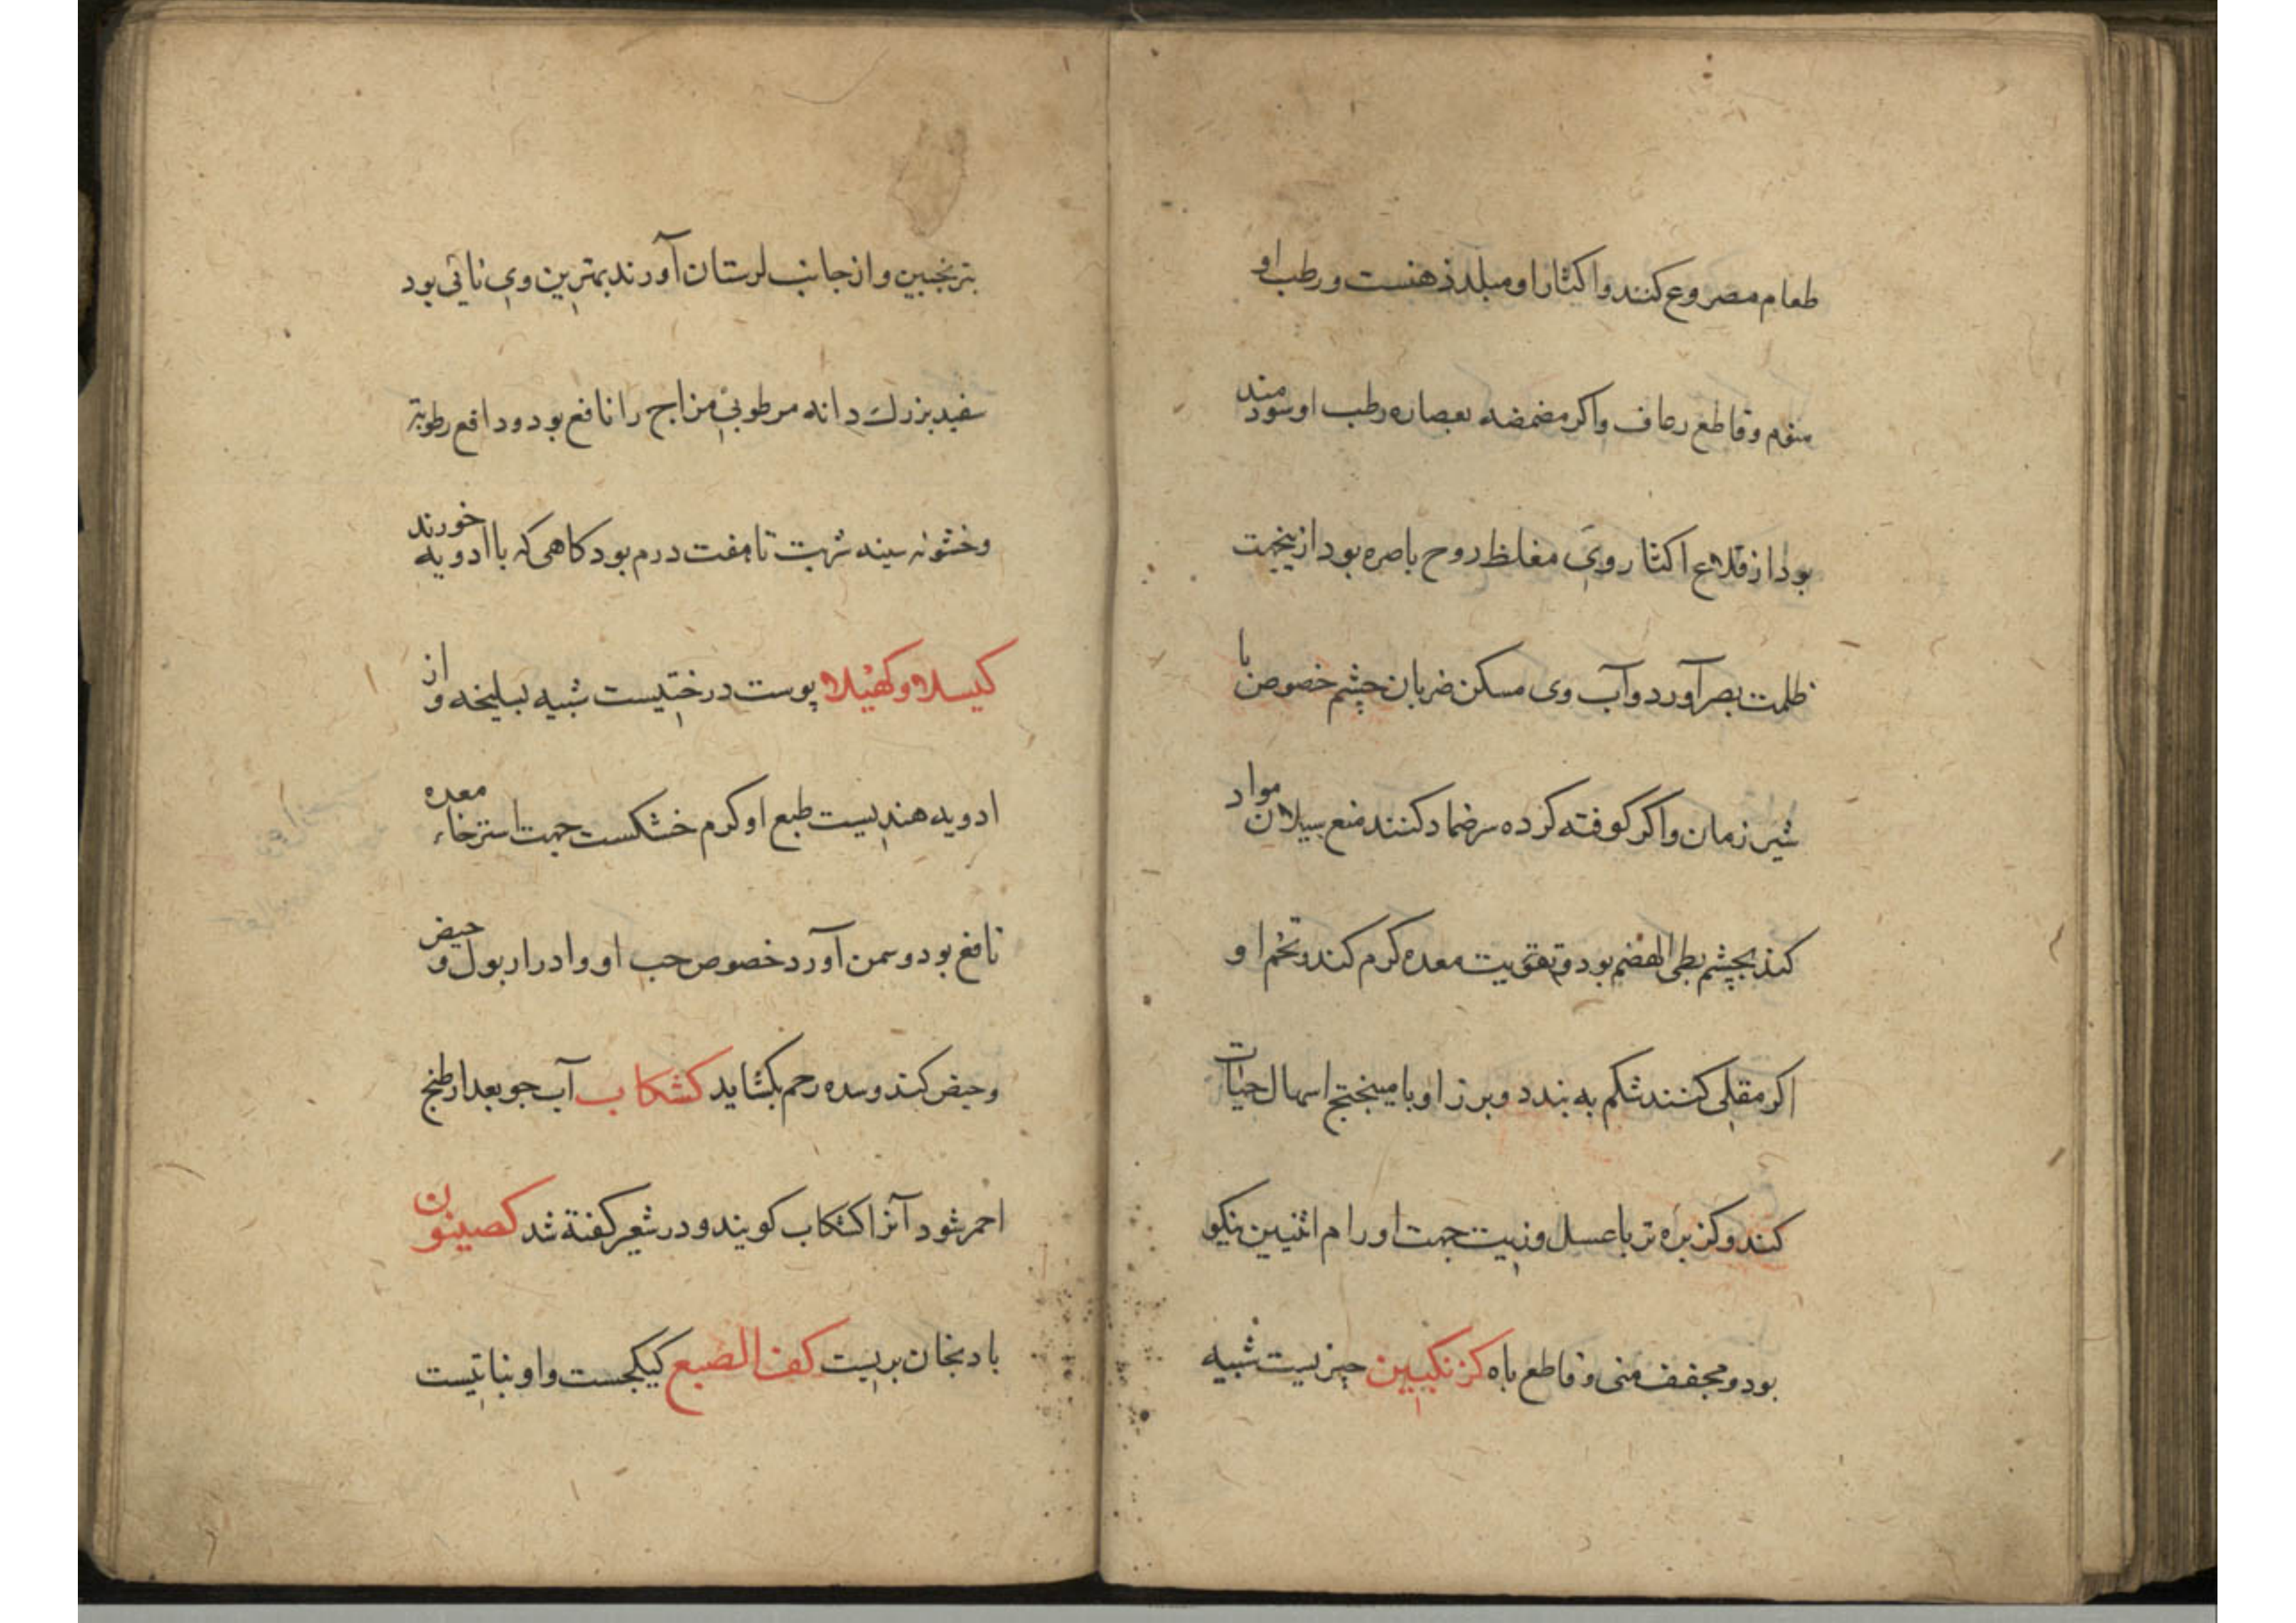 طعام مصروع کنند واکثار او مبلد ذهنست ورطب او
منوم وقاطع رعاف واکر مضمضه بعصاره رطب او سودمند
بود از قلاع اکثار وی مغلظ روح باصره بود ازینجهت
ظلمت بصر آورد وآب وی مسکن ضربان چشم خصوص با
شیر زمان واکر کوفته کرده سر ضماد کنند منع سیلان مواد
کند بچشم بطی الهضم بود وتقویت معده کرم کند وتخم او
اکر مقلی کنند شکم به بندد وبرز او با میبختج اسهال حیات
کند وکزبره تر با عسل وزیت جهت اورام انثیین نیکو
بود ومجفف منی وقاطع باه کزنکبین چیزیست شبیه
بترنجبین واز جانب لرستان آورند بهترین وی نائی بود
سفید بزرك دانه مرطوبی مزاج را نافع بود ودافع رطوبة
وخشونه سینه شربت تا هفت درم بود کاهی که با ادویه خورند
کیسلا وکهیلا پوست درختیست شبیه بسلیخه و از
ادویه هندیست طبع او کرم خشکست جهت استرخاء معده
نافع بود وسمن آورد خصوص حب او وادرار بول و حیض
وحیض کند وسده رحم بکشاید کشکاب آب جو بعد از طبخ
احمر شود آنرا کشکاب کویند ودر شعیر کفته شد کصینون
بادنجان بریست کف الضبع کبیکجست واو نباتیست